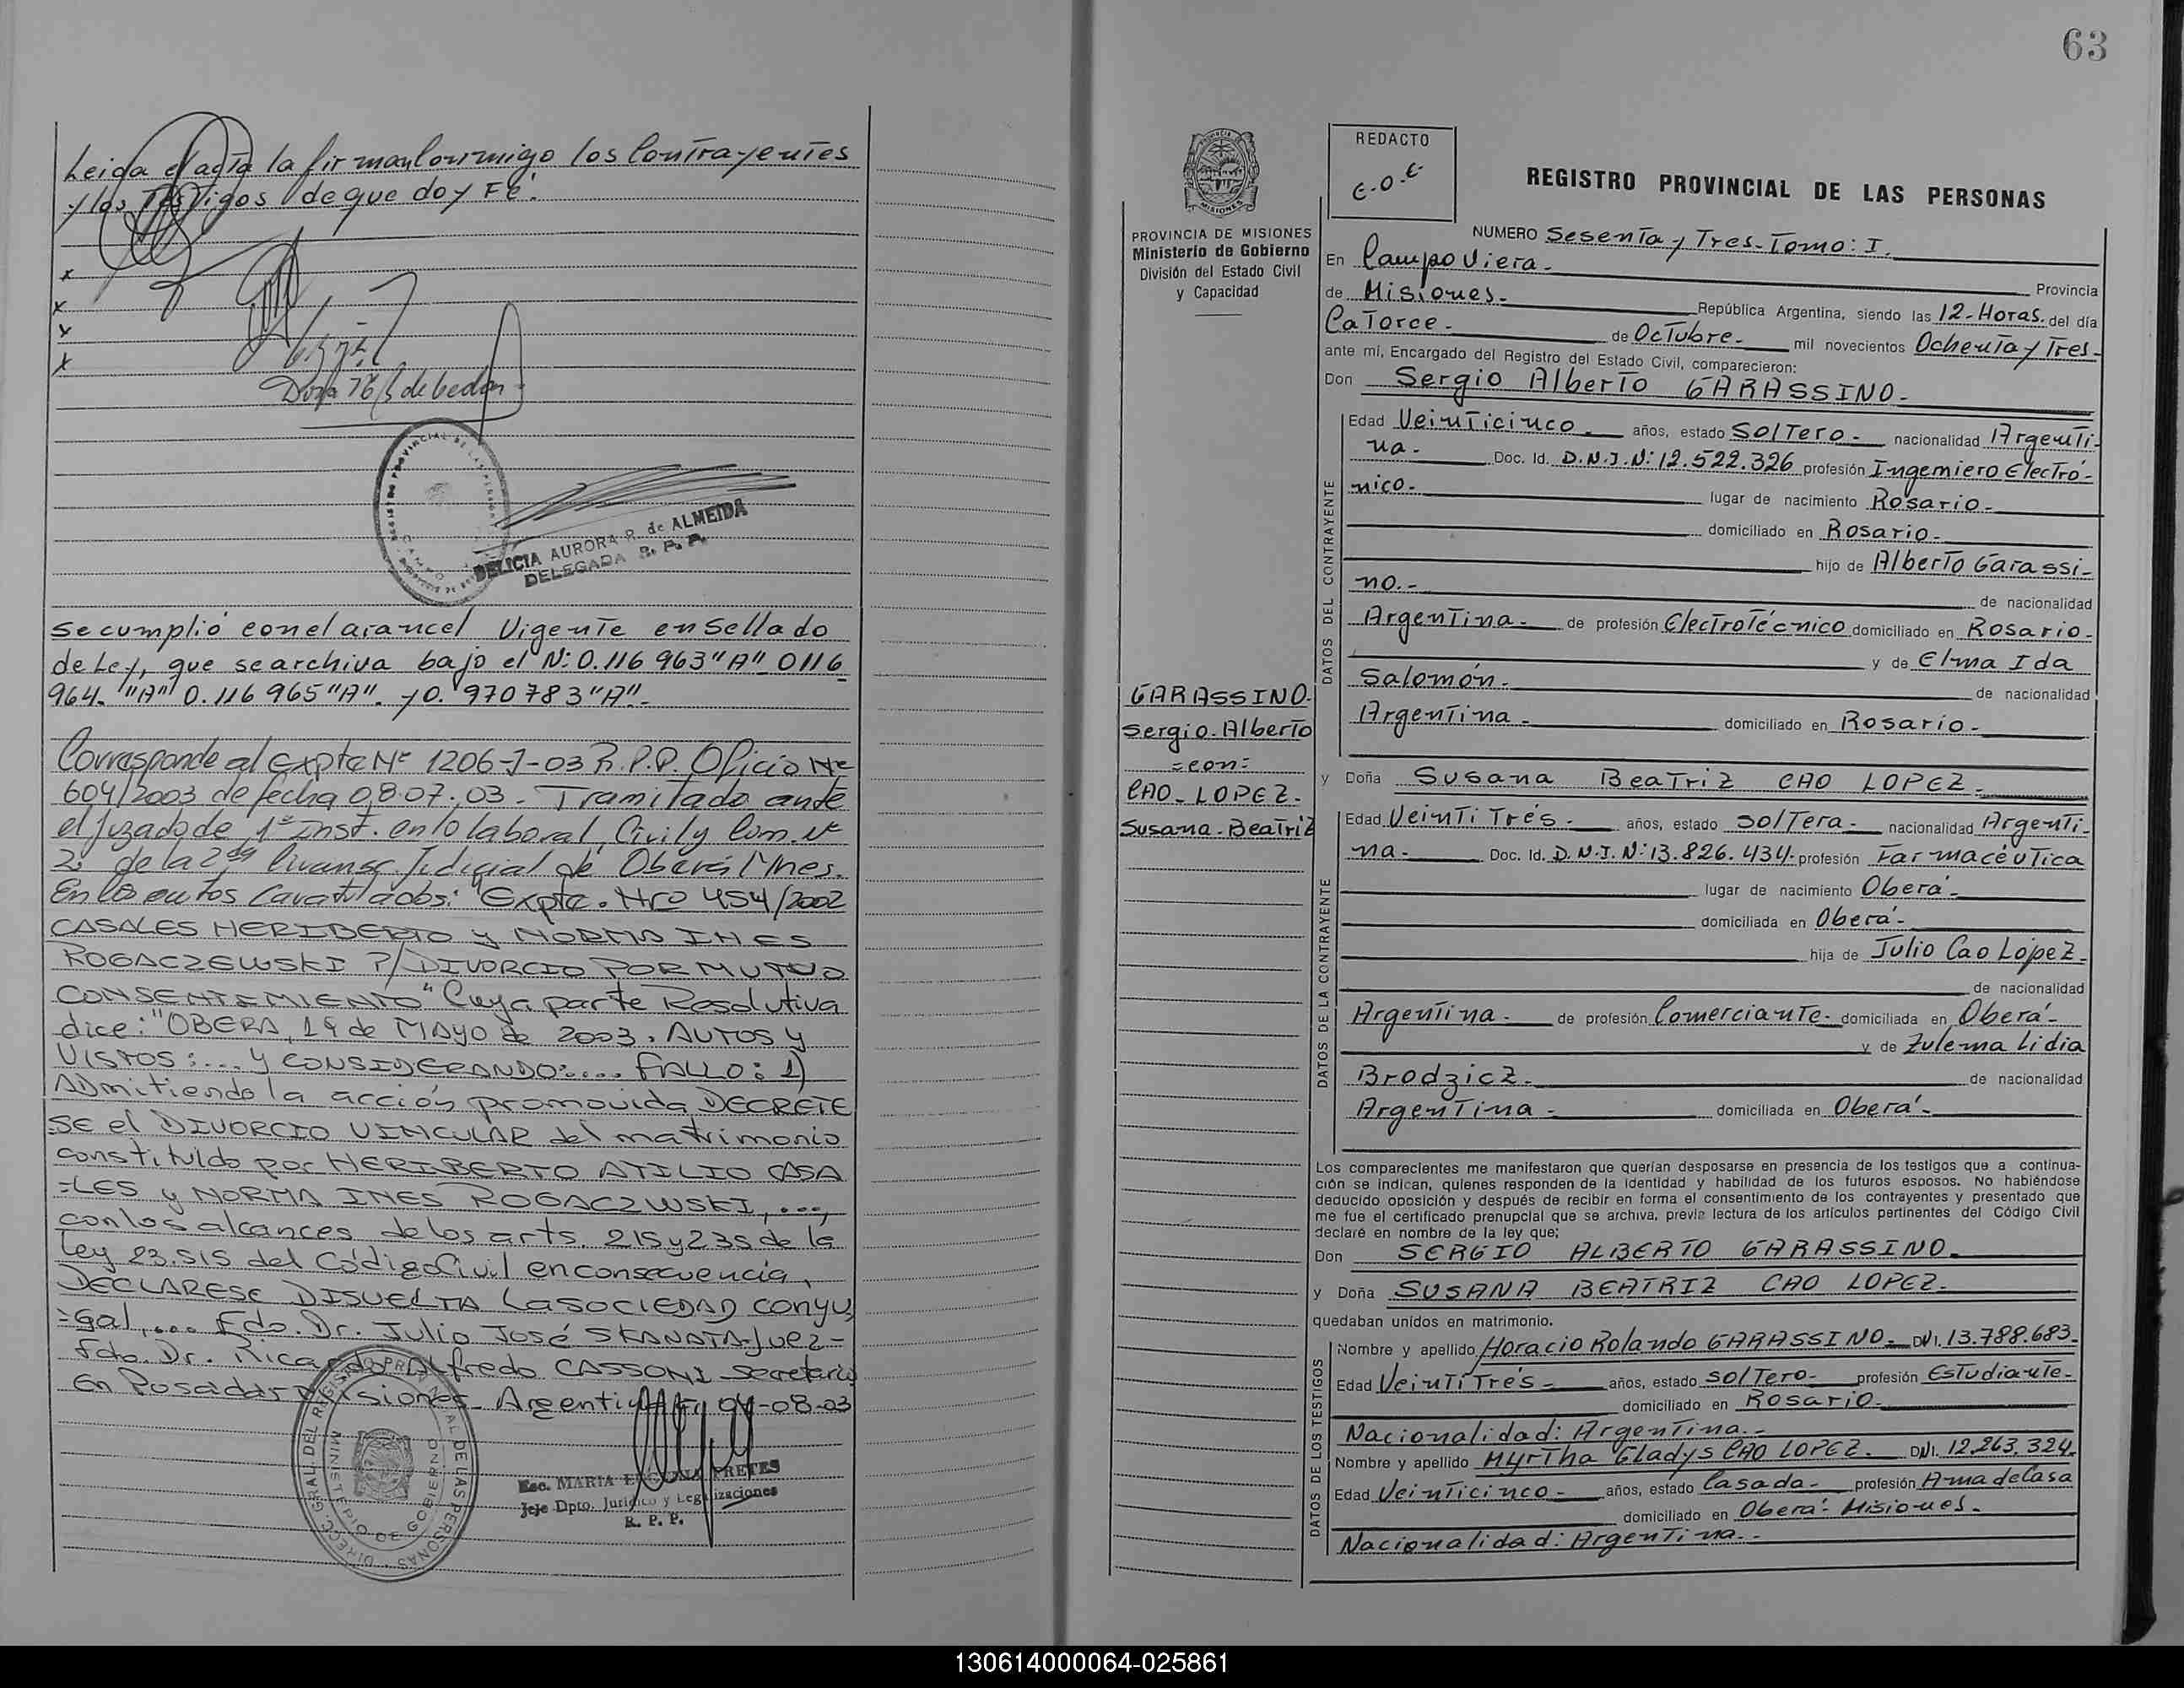 Leida el acta la firman conmigo los Contrayentes
y los Testigos de que doy Fé.
x
x
x
x
DELICIA AURORA R. de ALMEIDA
DELEGADA R. P. P.
Se cumplió con el arancel Vigente en Sellado
de Ley, que se archiva bajo el N: 0.116 963 "A" 0116
964. "A" 0.116 965 "A". y 0. 970 783 "A".-
Corresponde al Expte Nº 1206-J-03 R.P.P. Oficio Nº
604/2003 de fecha 08.07.03 - Tramitado ante
el Juzgado de 1º Inst. en lo laboral, Civil y Com. Nº
2: de la 2da Circunsc. Judicial de Oberá Mnes.
En los autos Caratulados: "Expte. Nro 454/2002
CASALES HERIBERTO y NORMA INES
ROGACZEWSKI P/ DIVORCIO POR MUTUO
CONSENTIMIENTO" Cuya parte Resolutiva
dice: "OBERA, 19 de MAYO de 2003. AUTOS y
VISTOS: ... y CONSIDERANDO: ... FALLO: 1)
ADmitiendo la acción promovida DECRETE
SE el DIVORCIO VINCULAR del matrimonio
constituido por HERIBERTO ATILIO CASA
=LES y NORMA INES ROGACZWSKI, ...,
con los alcances de los arts. 215 y 235 de la
Ley 23.515 del Código Civil en consecuencia,
DECLARESE DISUELTA La SOCIEDAD conyu
=gal, ... Fdo. Dr. Julio José SKANATA-Juez-
Fdo. Dr. Ricardo Alfredo CASSONI Secretario
En Posadas Misiones Argentina 04-08-03
Esc. MARIA PRETES
Jefe Dpto. Jurídico y Legalizaciones
R. P. P.
63
REDACTO
C.O.C.
REGISTRO PROVINCIAL DE LAS PERSONAS
PROVINCIA DE MISIONES
Ministerio de Gobierno
División del Estado Civil
y Capacidad
NUMERO Sesenta y Tres- Tomo: I.
En Campo Viera- Provincia
de Misiones. República Argentina, siendo las 12-Horas. del día
Catorce- de Octubre- mil novecientos Ochenta y Tres-
ante mí, Encargado del Registro del Estado Civil, comparecieron:
Don Sergio Alberto GARASSINO-
DATOS DEL CONTRAYENTE
Edad Veinticinco- años, estado Soltero- nacionalidad Argenti-
na- Doc. Id. D.N.I. N: 12.522.326 profesión Ingeniero Electró-
nico- lugar de nacimiento Rosario-
domiciliado en Rosario-
hijo de Alberto Garassi-
no.- de nacionalidad
Argentina- de profesión Electrotécnico domiciliado en Rosario-
y de Elma Ida
Salomón- de nacionalidad
Argentina- domiciliado en Rosario-
GARASSINO-
Sergio-Alberto
=con=
CAO-LOPEZ-
Susana-Beatriz
y Doña Susana Beatriz CAO LOPEZ-
DATOS DE LA CONTRAYENTE
Edad Veinti Trés- años, estado Soltera- nacionalidad Argenti-
na- Doc. Id. D.N.I. N: 13.826.434- profesión Farmacéutica
lugar de nacimiento Oberá-
domiciliada en Oberá-
hija de Julio Cao López-
de nacionalidad
Argentina- de profesión Comerciante- domiciliada en Oberá-
y de Zulema Lidia
Brodzicz- de nacionalidad
Argentina- domiciliada en Oberá-
Los comparecientes me manifestaron que querían desposarse en presencia de los testigos que a continua-
ción se indican, quienes responden de la identidad y habilidad de los futuros esposos. No habiéndose
deducido oposición y después de recibir en forma el consentimiento de los contrayentes y presentado que
me fue el certificado prenupcial que se archiva, previa lectura de los artículos pertinentes del Código Civil
declaré en nombre de la ley que;
Don SERGIO ALBERTO GARASSINO-
y Doña SUSANA BEATRIZ CAO LOPEZ-
quedaban unidos en matrimonio.
DATOS DE LOS TESTIGOS
Nombre y apellido Horacio Rolando GARASSINO- DNI. 13.788.683-
Edad Veinti Trés- años, estado Soltero- profesión Estudiante-
domiciliado en Rosario-
Nacionalidad: Argentina.-
Nombre y apellido Myrtha Gladys CAO LOPEZ- DNI. 12.263.324.
Edad Veinticinco- años, estado Casada- profesión Ama de Casa
domiciliado en Oberá- Misiones-
Nacionalidad: Argentina.-
130614000064-025861